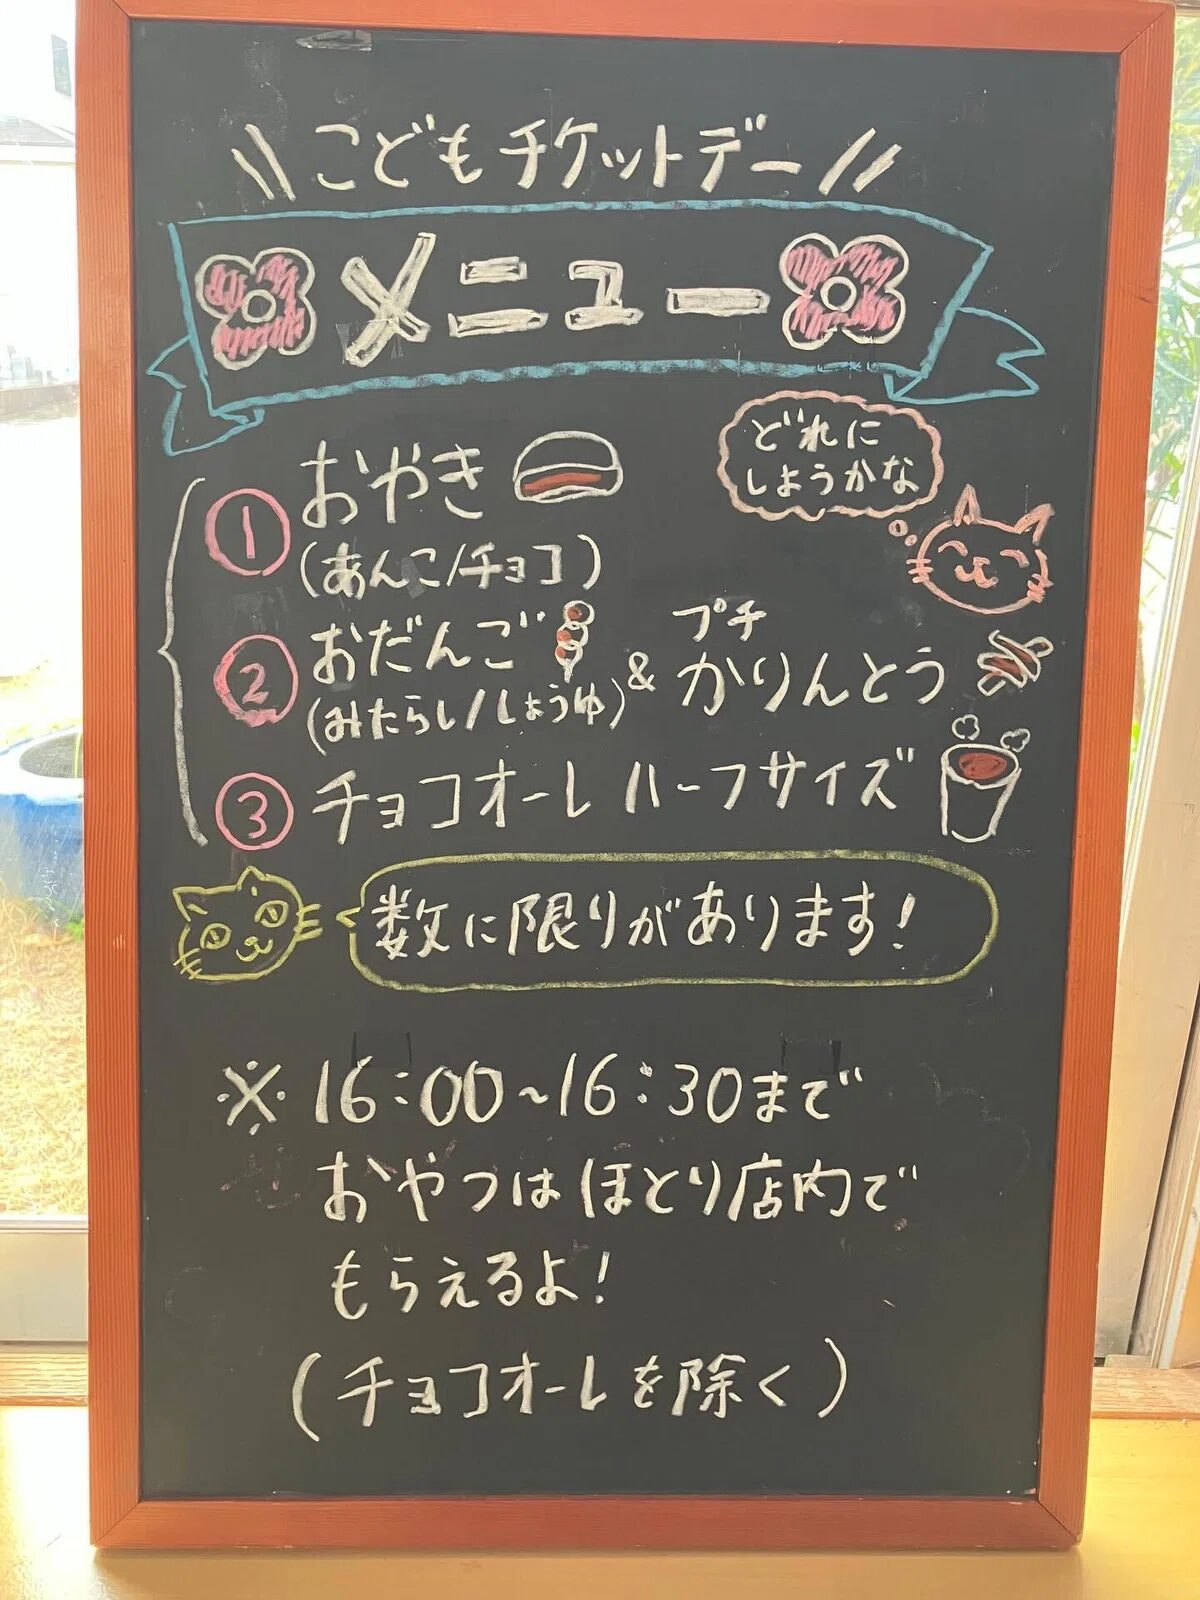 \\こどもチケットデー//
メニュー
どれに
しようかな
① おやき
(あんこ/チョコ)
② おだんご & プチかりんとう
(みたらし/しょうゆ)
③ チョコオーレ ハーフサイズ
数に限りがあります!
※16:00~16:30まで
おやつはほとり店内で
もらえるよ!
(チョコオーレを除く)